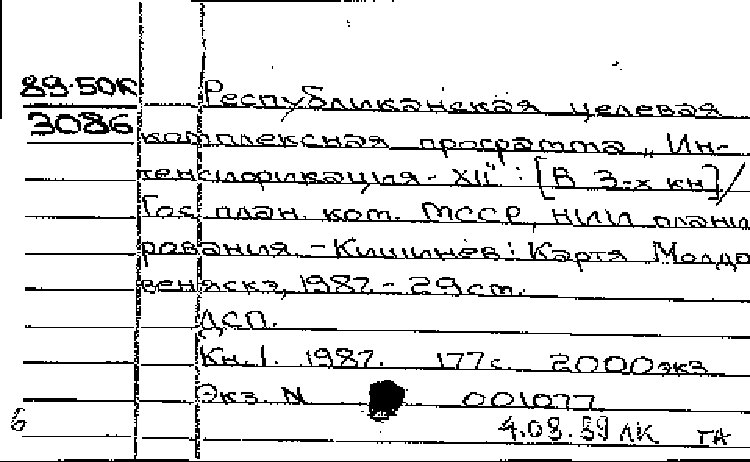 89-50К Республиканская целевая
3086 комплексная программа „Ин-
тенсификация-XII" : [В 3-х кн]/
Гос. план. ком. МССР, НИИ плани
рования. - Кишинев: Картя Молдо
веняскэ, 1987. - 29 cm.
ДСП.
Кн. 1. 1987. 177 с. 2000 экз
Экз. N 001077
6 4.08.89 ЛК ТА